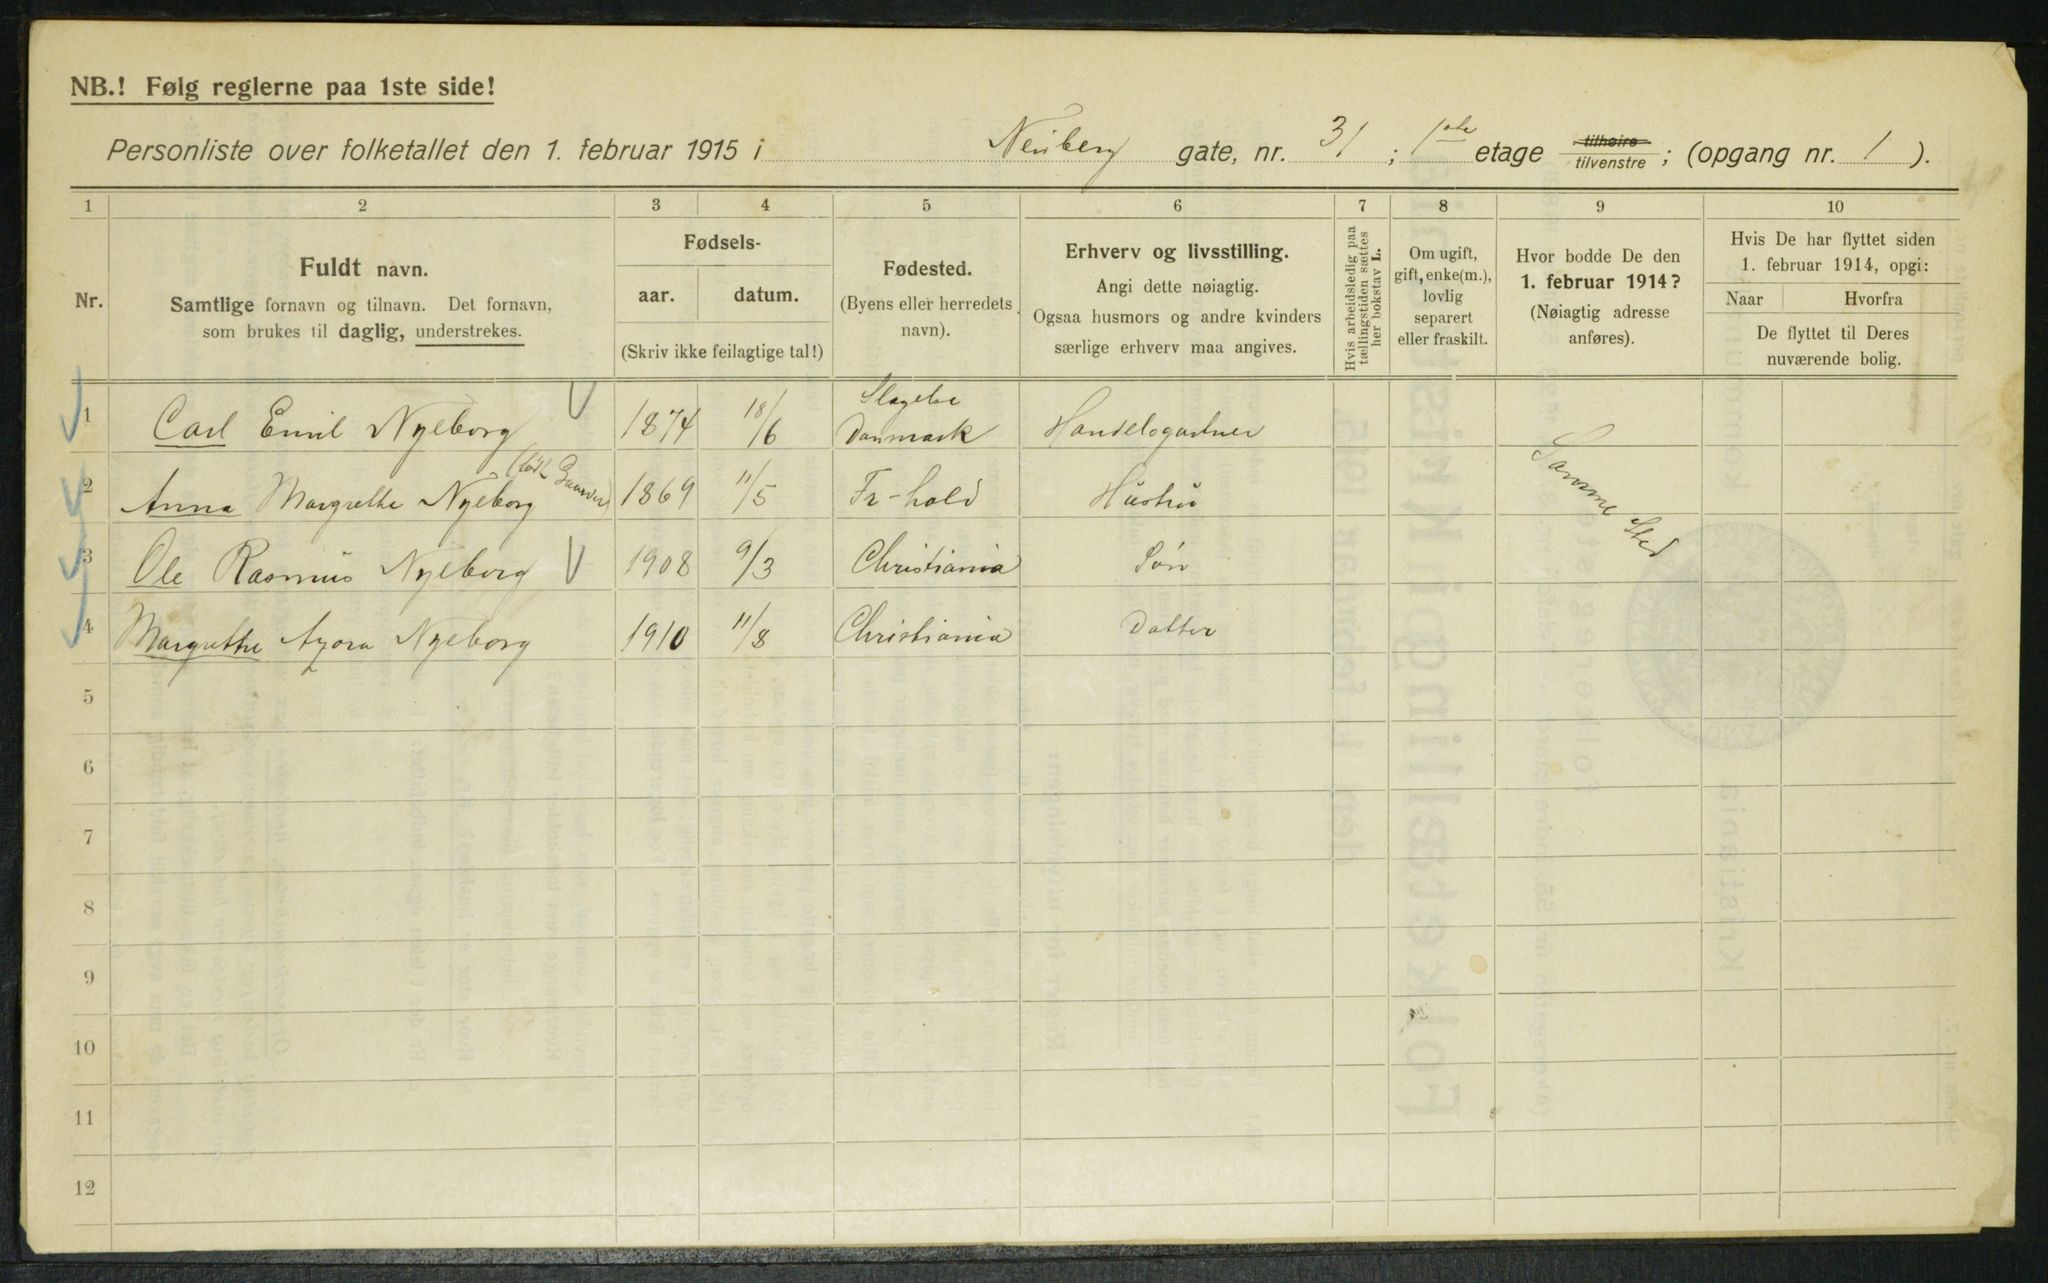 NB.! Følg reglerne paa 1ste side!
Personliste over folketallet den 1. februar 1915 i Neuberg gate, nr. 31 ; 1ste etage tilhøire/tilvenstre ; (opgang nr. 1 ).
1 2 3 4 5 6 7 8 9 10
Nr.
Fuldt navn.
Samtlige fornavn og tilnavn. Det fornavn,
som brukes til daglig, understrekes.
Fødsels-
aar. datum.
(Skriv ikke feilagtige tal!)
Fødested.
(Byens eller herredets
navn).
Erhverv og livsstilling.
Angi dette nøiagtig.
Ogsaa husmors og andre kvinders
særlige erhverv maa angives.
Hvis arbeidsledig paa
tællingstiden sættes
her bokstav L.
Om ugift,
gift, enke(m.),
lovlig
separert
eller fraskilt.
Hvor bodde De den
1. februar 1914?
(Nøiagtig adresse
anføres).
Hvis De har flyttet siden
1. februar 1914, opgi:
Naar Hvorfra
De flyttet til Deres
nuværende bolig.
1 Carl Emil Nyeborg 1874 18/6 Slagelse Danmark Handelsgartner
2 Anna Margrethe Nyeborg (født 1869 11/5 Fr-hald Hustru
Samme Sted
3 Ole Rasmus Nyeborg 1908 9/3 Christiania Søn
4 Margrethe Agora Nyeborg 1910 11/8 Christiania Datter
5
6
7
8
9
10
11
12